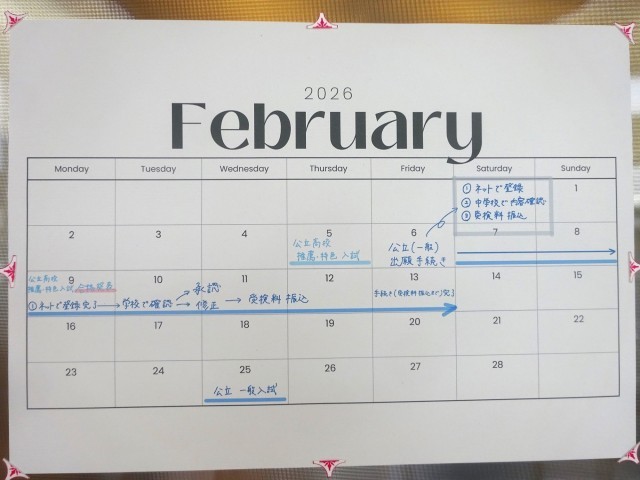 2026
February
Monday Tuesday Wednesday Thursday Friday Saturday Sunday
① ネットで登録
② 中学校で内容確認
③ 受検料振込
1
2 3 4 5 6 7 8
公立高校
推薦・特色入試
公立(一般)
出願手続き
9 10 11 12 13 14 15
公立高校
推薦・特色入試 合格発表
①ネットで登録完了→学校で確認→承認
修正→受検料振込
手続き(受検料振込まで)完了
16 17 18 19 20 21 22
23 24 25 26 27 28
公立一般入試